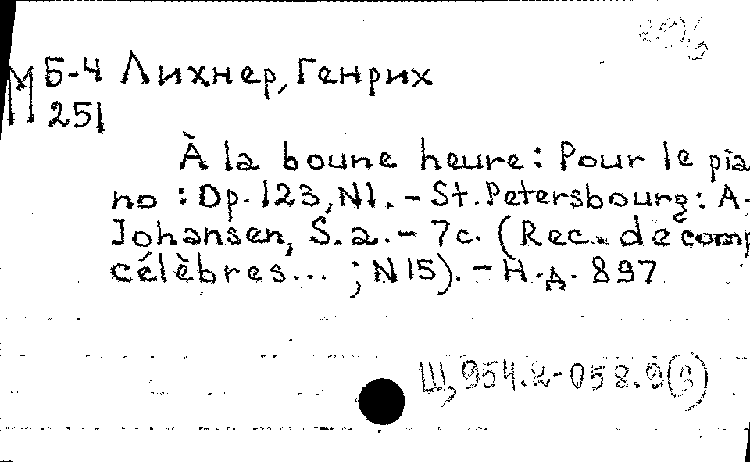 М Б-4 Лихнер, Генрих
251
À la boune heure: Pour le pia
no : Op. 123, N1. – St. Petersbourg: A.
Johansen, S.a. – 7c. (Rec. de comp
célèbres... ; N 15). – Н.д. 897
Щ 954.2-058.9(